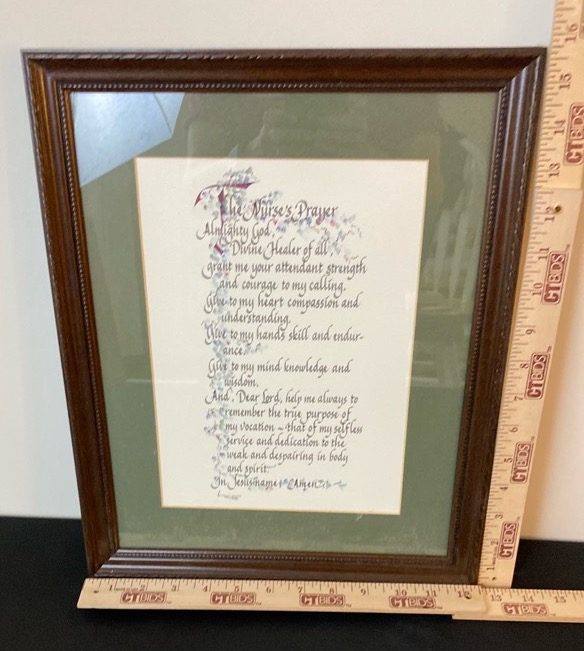 The Nurse's Prayer
Almighty God,
Divine Healer of all,
grant me your attendant strength
and courage to my calling.
Give to my heart compassion and
understanding.
Give to my hands skill and endur-
ance.
Give to my mind knowledge and
wisdom.
And, Dear Lord, help me always to
remember the true purpose of
my vocation – that of my selfless
service and dedication to the
weak and despairing in body
and spirit.
In Jesus name Amen
1 2 3 4 5 6 7 8 9 10 11 12 13 14 15 16
CTBIDS
CTBIDS
CTBIDS
CTBIDS
CTBIDS
1 2 3 4 5 6 7 8 9 10 11 13 14 15
CTBIDS
CTBIDS
CTBIDS
CTBIDS
CTBIDS